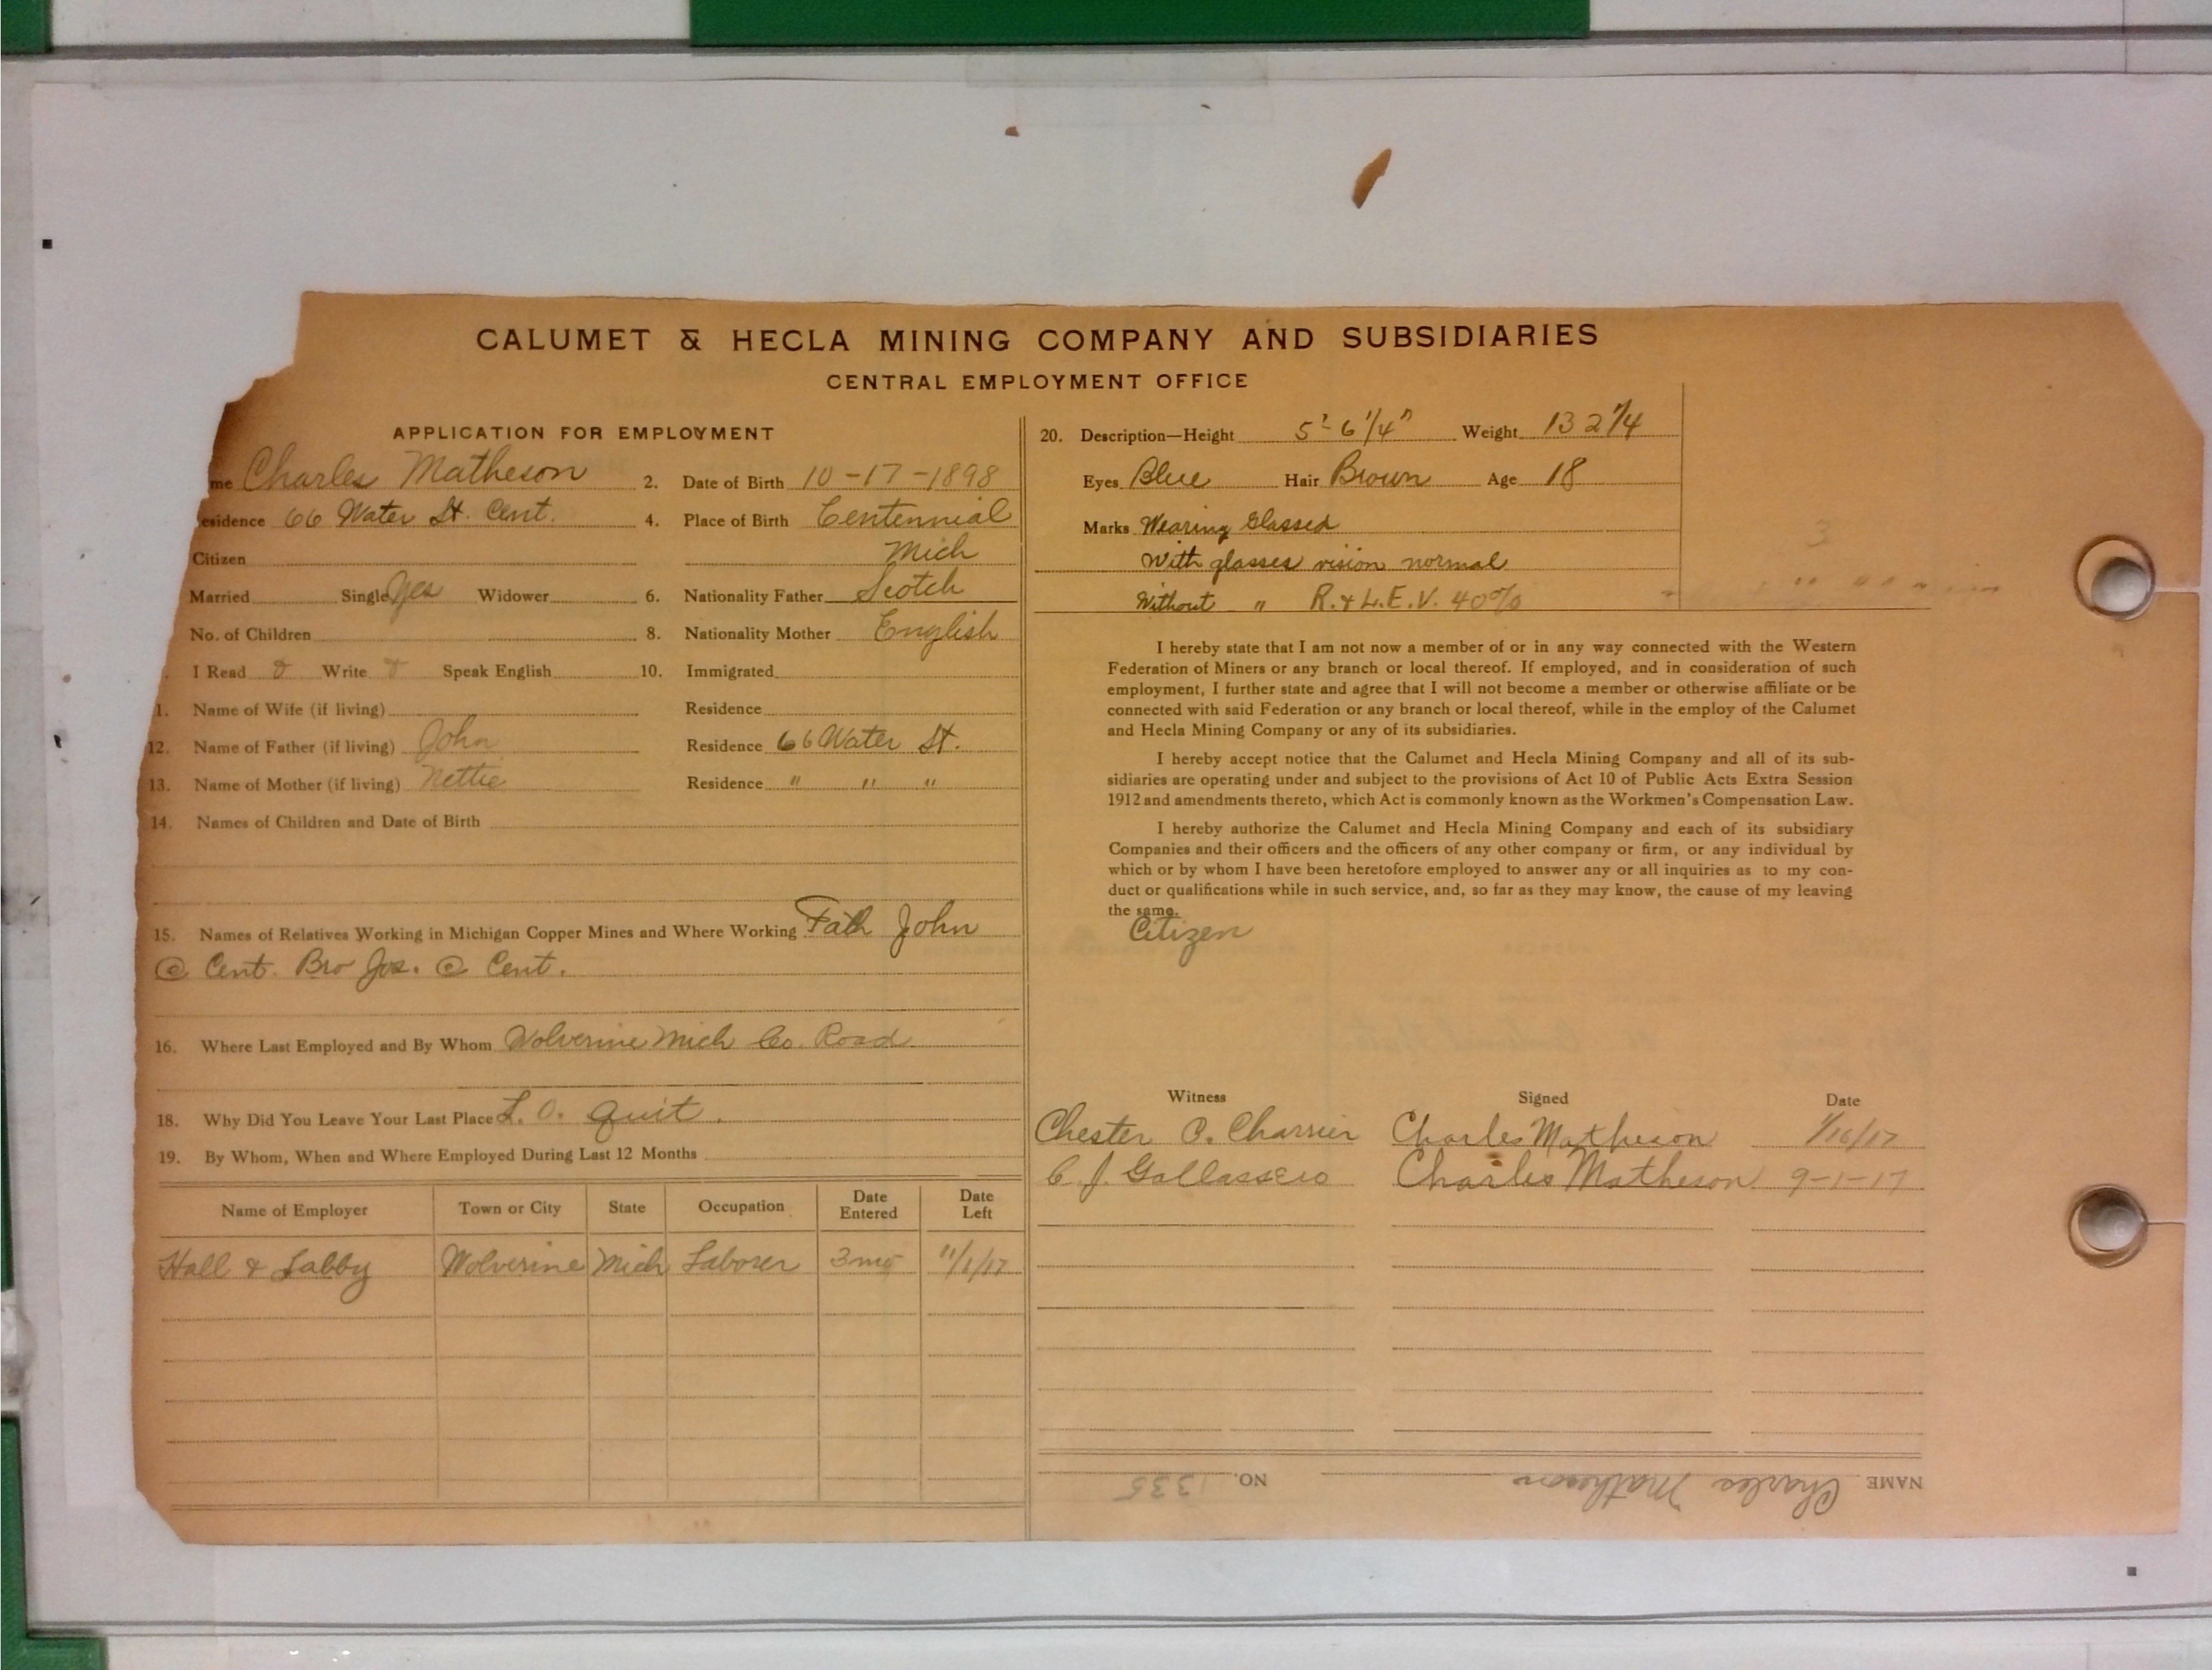 CALUMET & HECLA MINING COMPANY AND SUBSIDIARIES
CENTRAL EMPLOYMENT OFFICE
APPLICATION FOR EMPLOYMENT
me Charles Matheson 2. Date of Birth 10-17-1898
esidence 66 Water St. Cent. 4. Place of Birth Centennial
Citizen Mich
Married Single Yes Widower 6. Nationality Father Scotch
No. of Children 8. Nationality Mother English
I Read Write Speak English 10. Immigrated
1. Name of Wife (if living) Residence
12. Name of Father (if living) John Residence 66 Water St.
13. Name of Mother (if living) Nettie Residence " " "
14. Names of Children and Date of Birth
15. Names of Relatives Working in Michigan Copper Mines and Where Working Fath John
@ Cent. Bro Jos. @ Cent.
16. Where Last Employed and By Whom Wolverine Mich Co. Road
18. Why Did You Leave Your Last Place L. O. Quit.
19. By Whom, When and Where Employed During Last 12 Months
Name of Employer Town or City State Occupation Date Entered Date Left
Hall & Labby Wolverine Mich Laborer 3 mo 11/1/17
20. Description—Height 5' 6 1/4" Weight 132 1/4
Eyes Blue Hair Brown Age 18
Marks Wearing Glassed
With glasses vision normal
Without " R. & L. E. V. 40%
I hereby state that I am not now a member of or in any way connected with the Western
Federation of Miners or any branch or local thereof. If employed, and in consideration of such
employment, I further state and agree that I will not become a member or otherwise affiliate or be
connected with said Federation or any branch or local thereof, while in the employ of the Calumet
and Hecla Mining Company or any of its subsidiaries.
I hereby accept notice that the Calumet and Hecla Mining Company and all of its sub-
sidiaries are operating under and subject to the provisions of Act 10 of Public Acts Extra Session
1912 and amendments thereto, which Act is commonly known as the Workmen's Compensation Law.
I hereby authorize the Calumet and Hecla Mining Company and each of its subsidiary
Companies and their officers and the officers of any other company or firm, or any individual by
which or by whom I have been heretofore employed to answer any or all inquiries as to my con-
duct or qualifications while in such service, and, so far as they may know, the cause of my leaving
the same.
Citizen
Witness Signed Date
Chester C. Charrier Charles Matheson 1/16/17
C. J. Gallassero Charles Matheson 9-1-17
NAME Charles Matheson NO. 1335